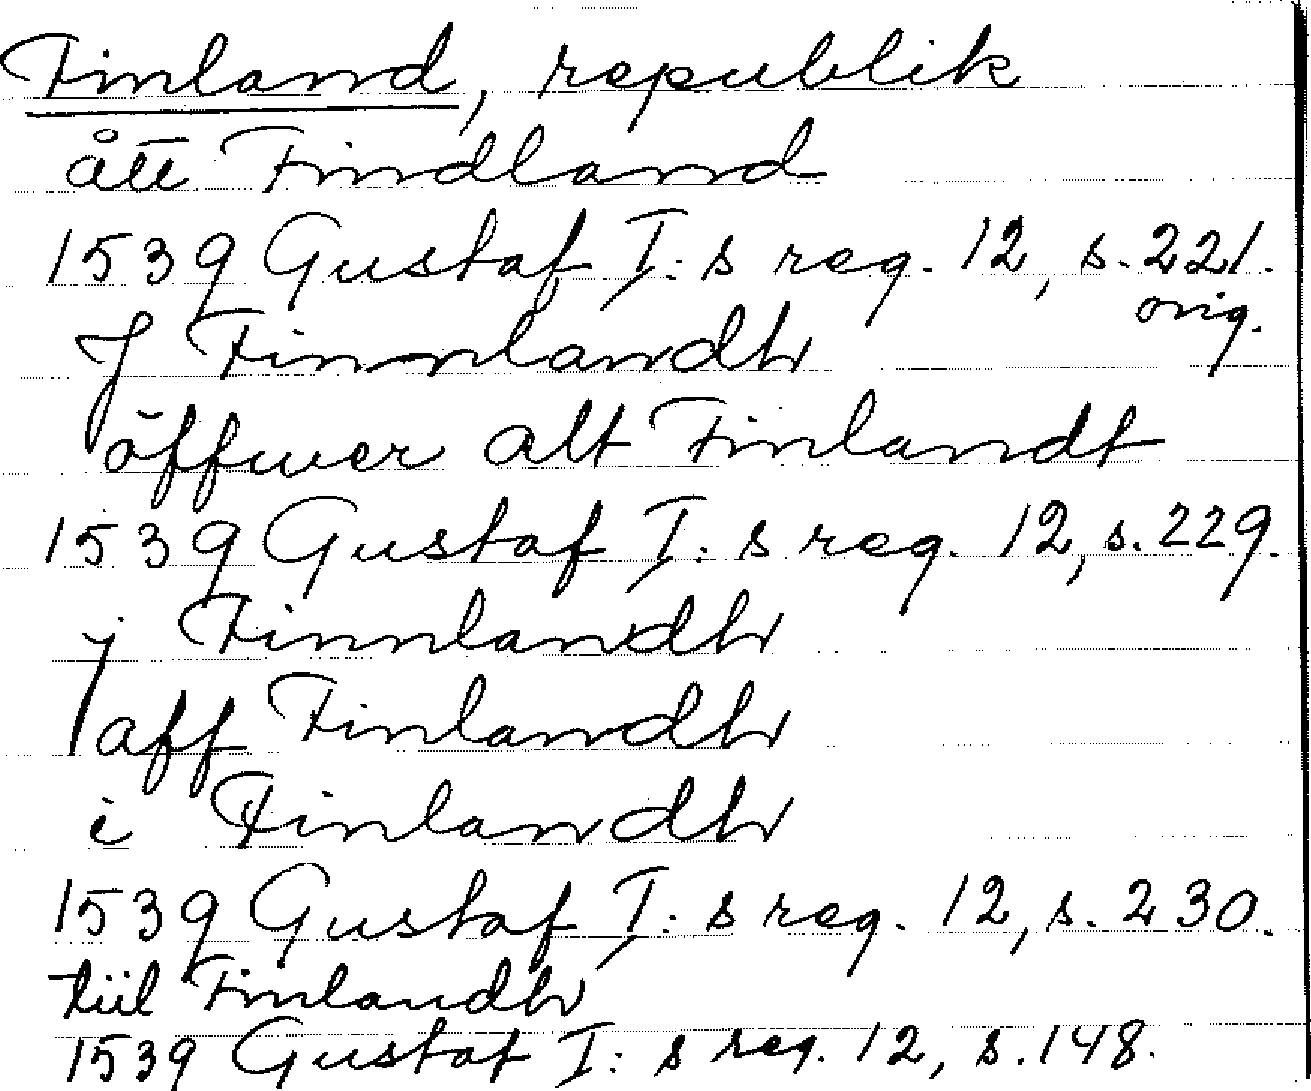 Finland, republik
ått Findland
1539 Gustaf I:s reg. 12, s. 221.
orig.
J Finnlandh
öffwer alt Finlandt
1539 Gustaf I:s reg. 12, s. 229.
j Finnlandh
aff Finlandh
i Finlandh
1539 Gustaf I:s reg. 12, s. 230.
tiil Finlandh
1539 Gustaf I:s reg. 12, s. 148.